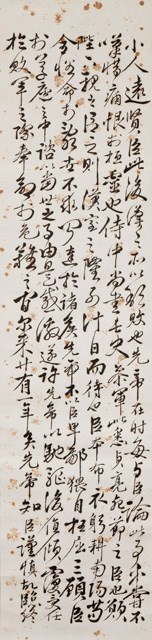 小人遠賢臣此後漢之所以傾頹也先帝在時每與臣論此事未嘗不
嘆惜痛恨於桓靈也侍中尚書長史參軍此悉貞亮死節之臣也願
陛下親之信之則漢室之隆可計日而待也臣本布衣躬耕南陽苟
全性命於亂世不求聞達於諸侯先帝不以臣卑鄙猥自枉屈三顧臣
於草廬之中諮臣以當世之事由是感激遂許先帝以驅馳後值傾覆受任
於敗軍之際奉命於危難之間爾来廿有一年矣先帝知臣謹慎故臨終